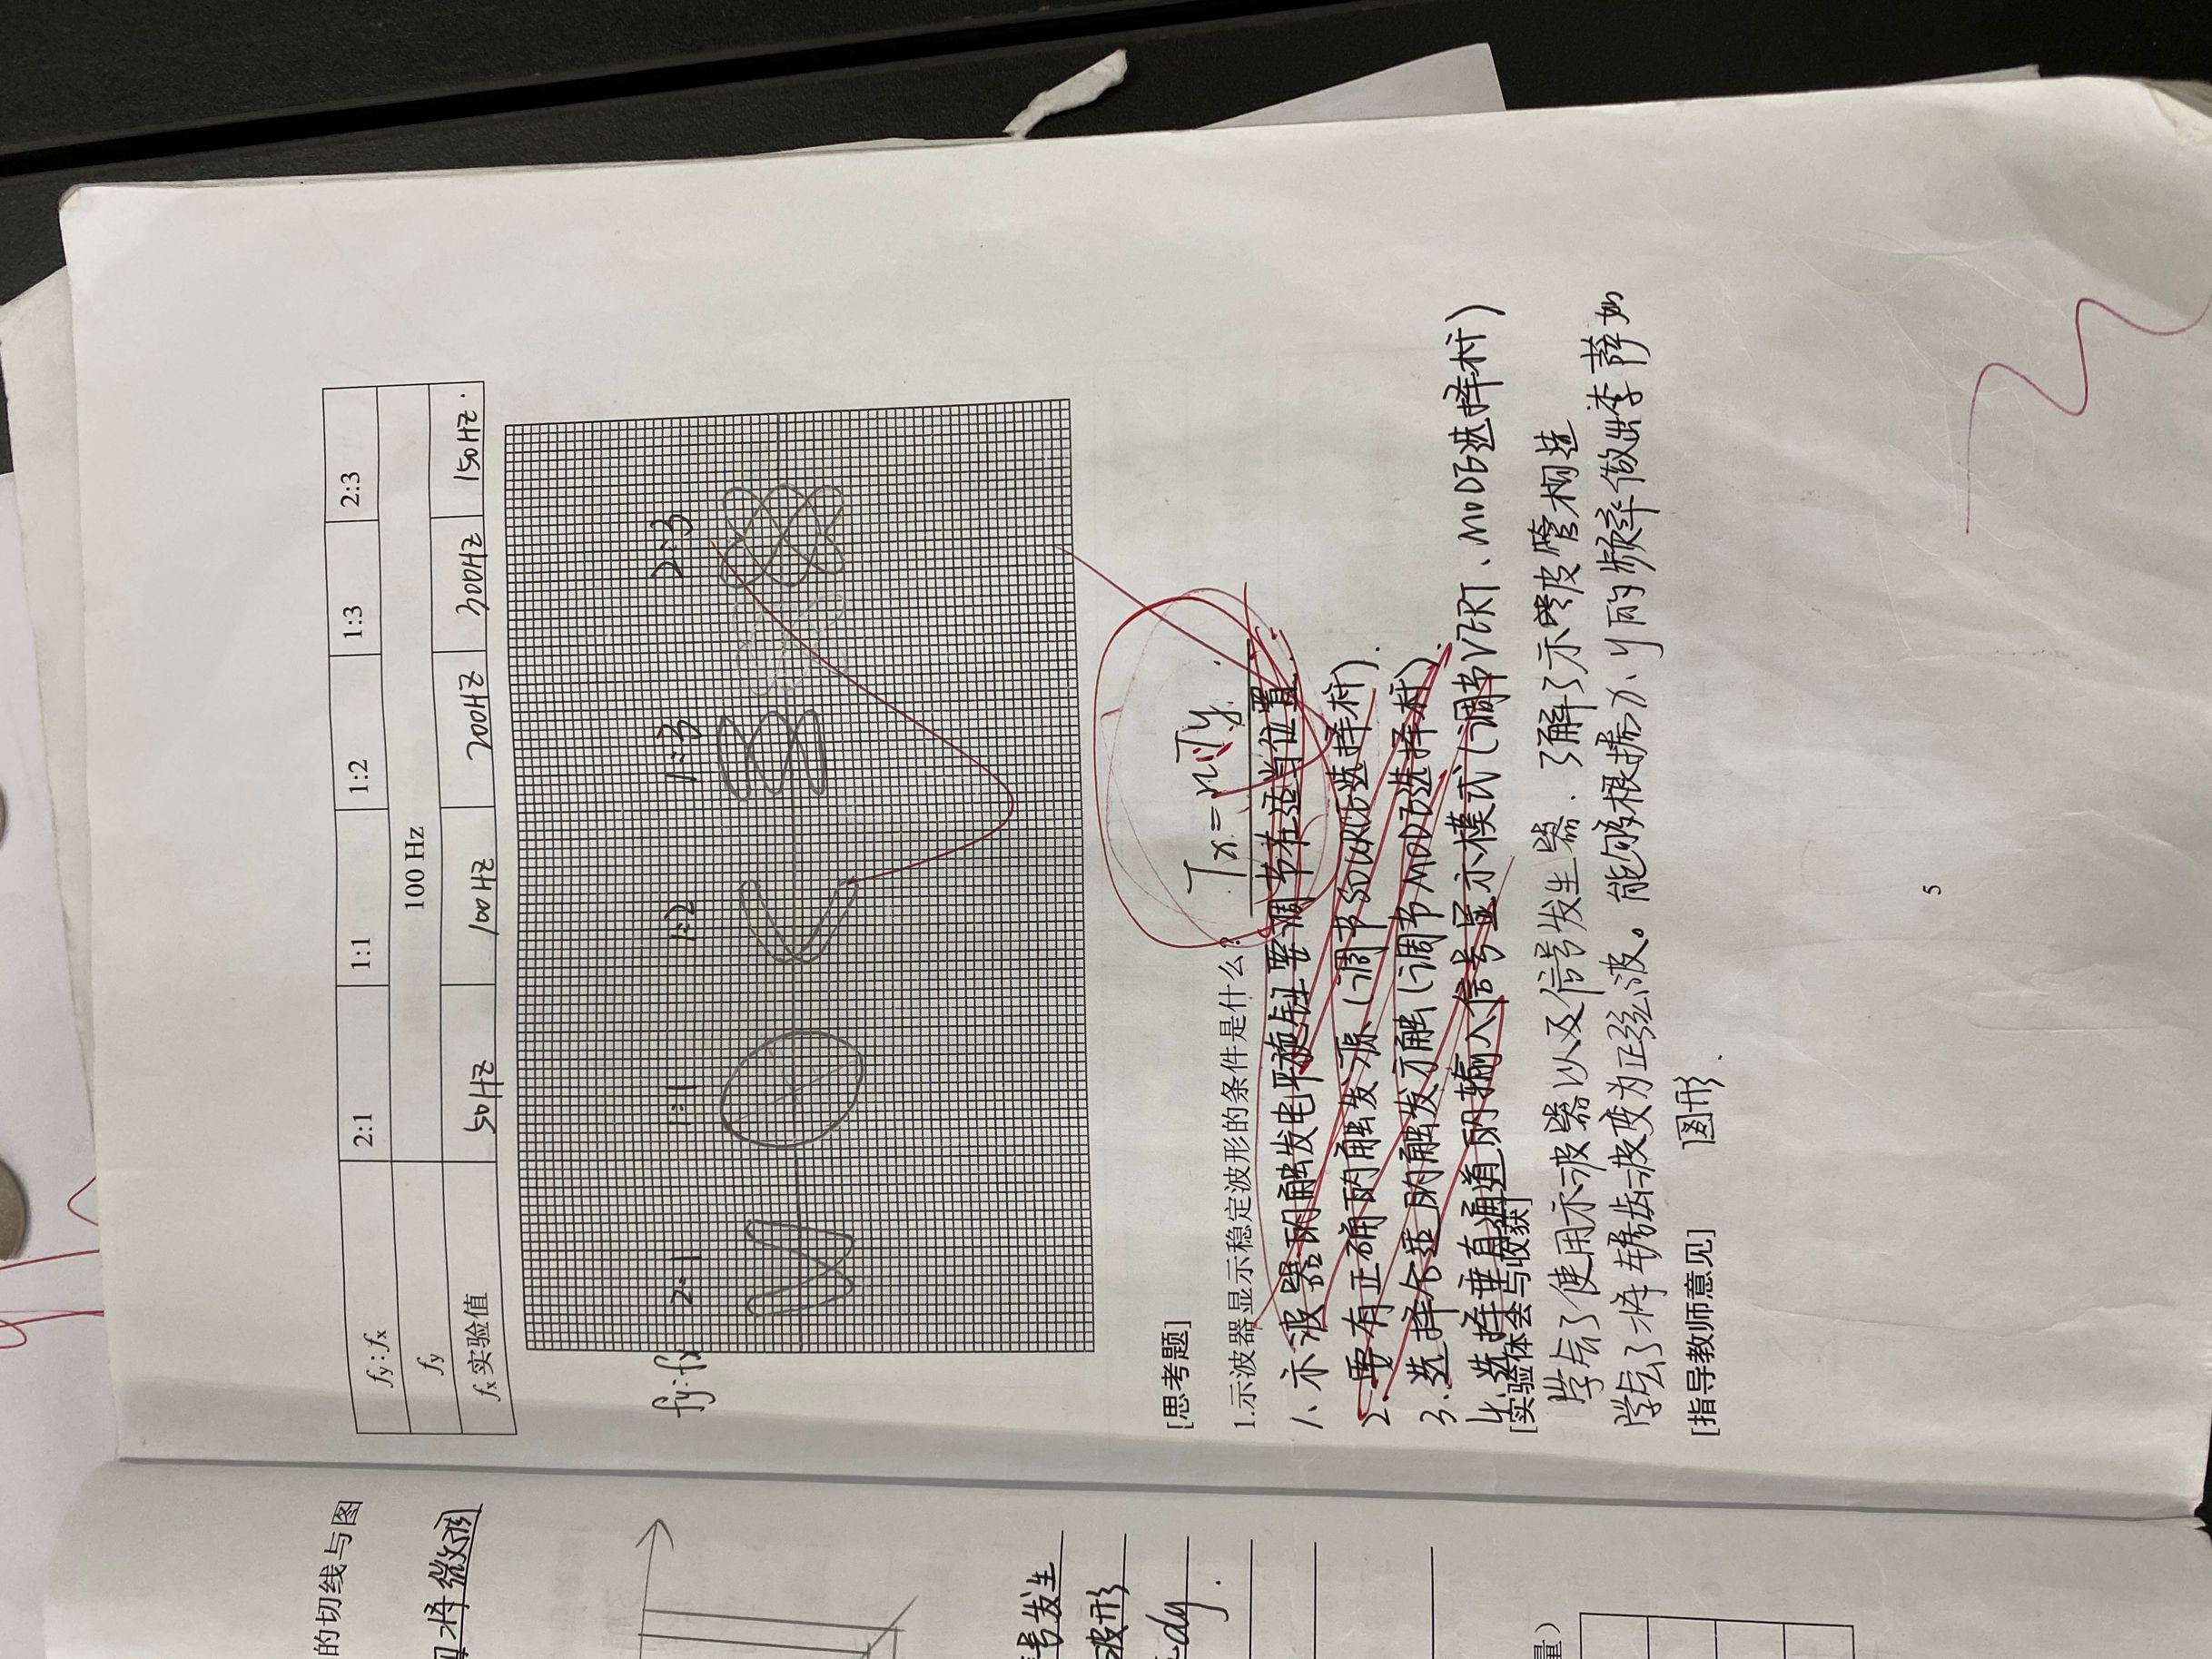 的切线与图
将微调
号发生
波形
dy.
量）
fy:fx 2:1 1:1 1:2 1:3 2:3
fy 100 Hz
fx 实验值 50HZ 100HZ 200HZ 300HZ 150HZ.
fy:fx 2:1 1:1 1:2 1:3 2:3
[思考题]
Tx = nTy.
1.示波器显示稳定波形的条件是什么？
1、示波器的触发电平旋钮要调节在适当位置.
2、要有正确的触发源(调节SOURCE选择杆).
3、选择合适的触发方触(调节MODE选择杆).
4、选择垂直通道的输入信号显示模式(调节VERT、MODE选择杆)
[实验体会与收获]
学会了使用示波器以及信号发生器.了解了示波管构造
学会了将锯齿波变为正弦波。能够根据x、y的频率做出李萨如
图形.
[指导教师意见]
5